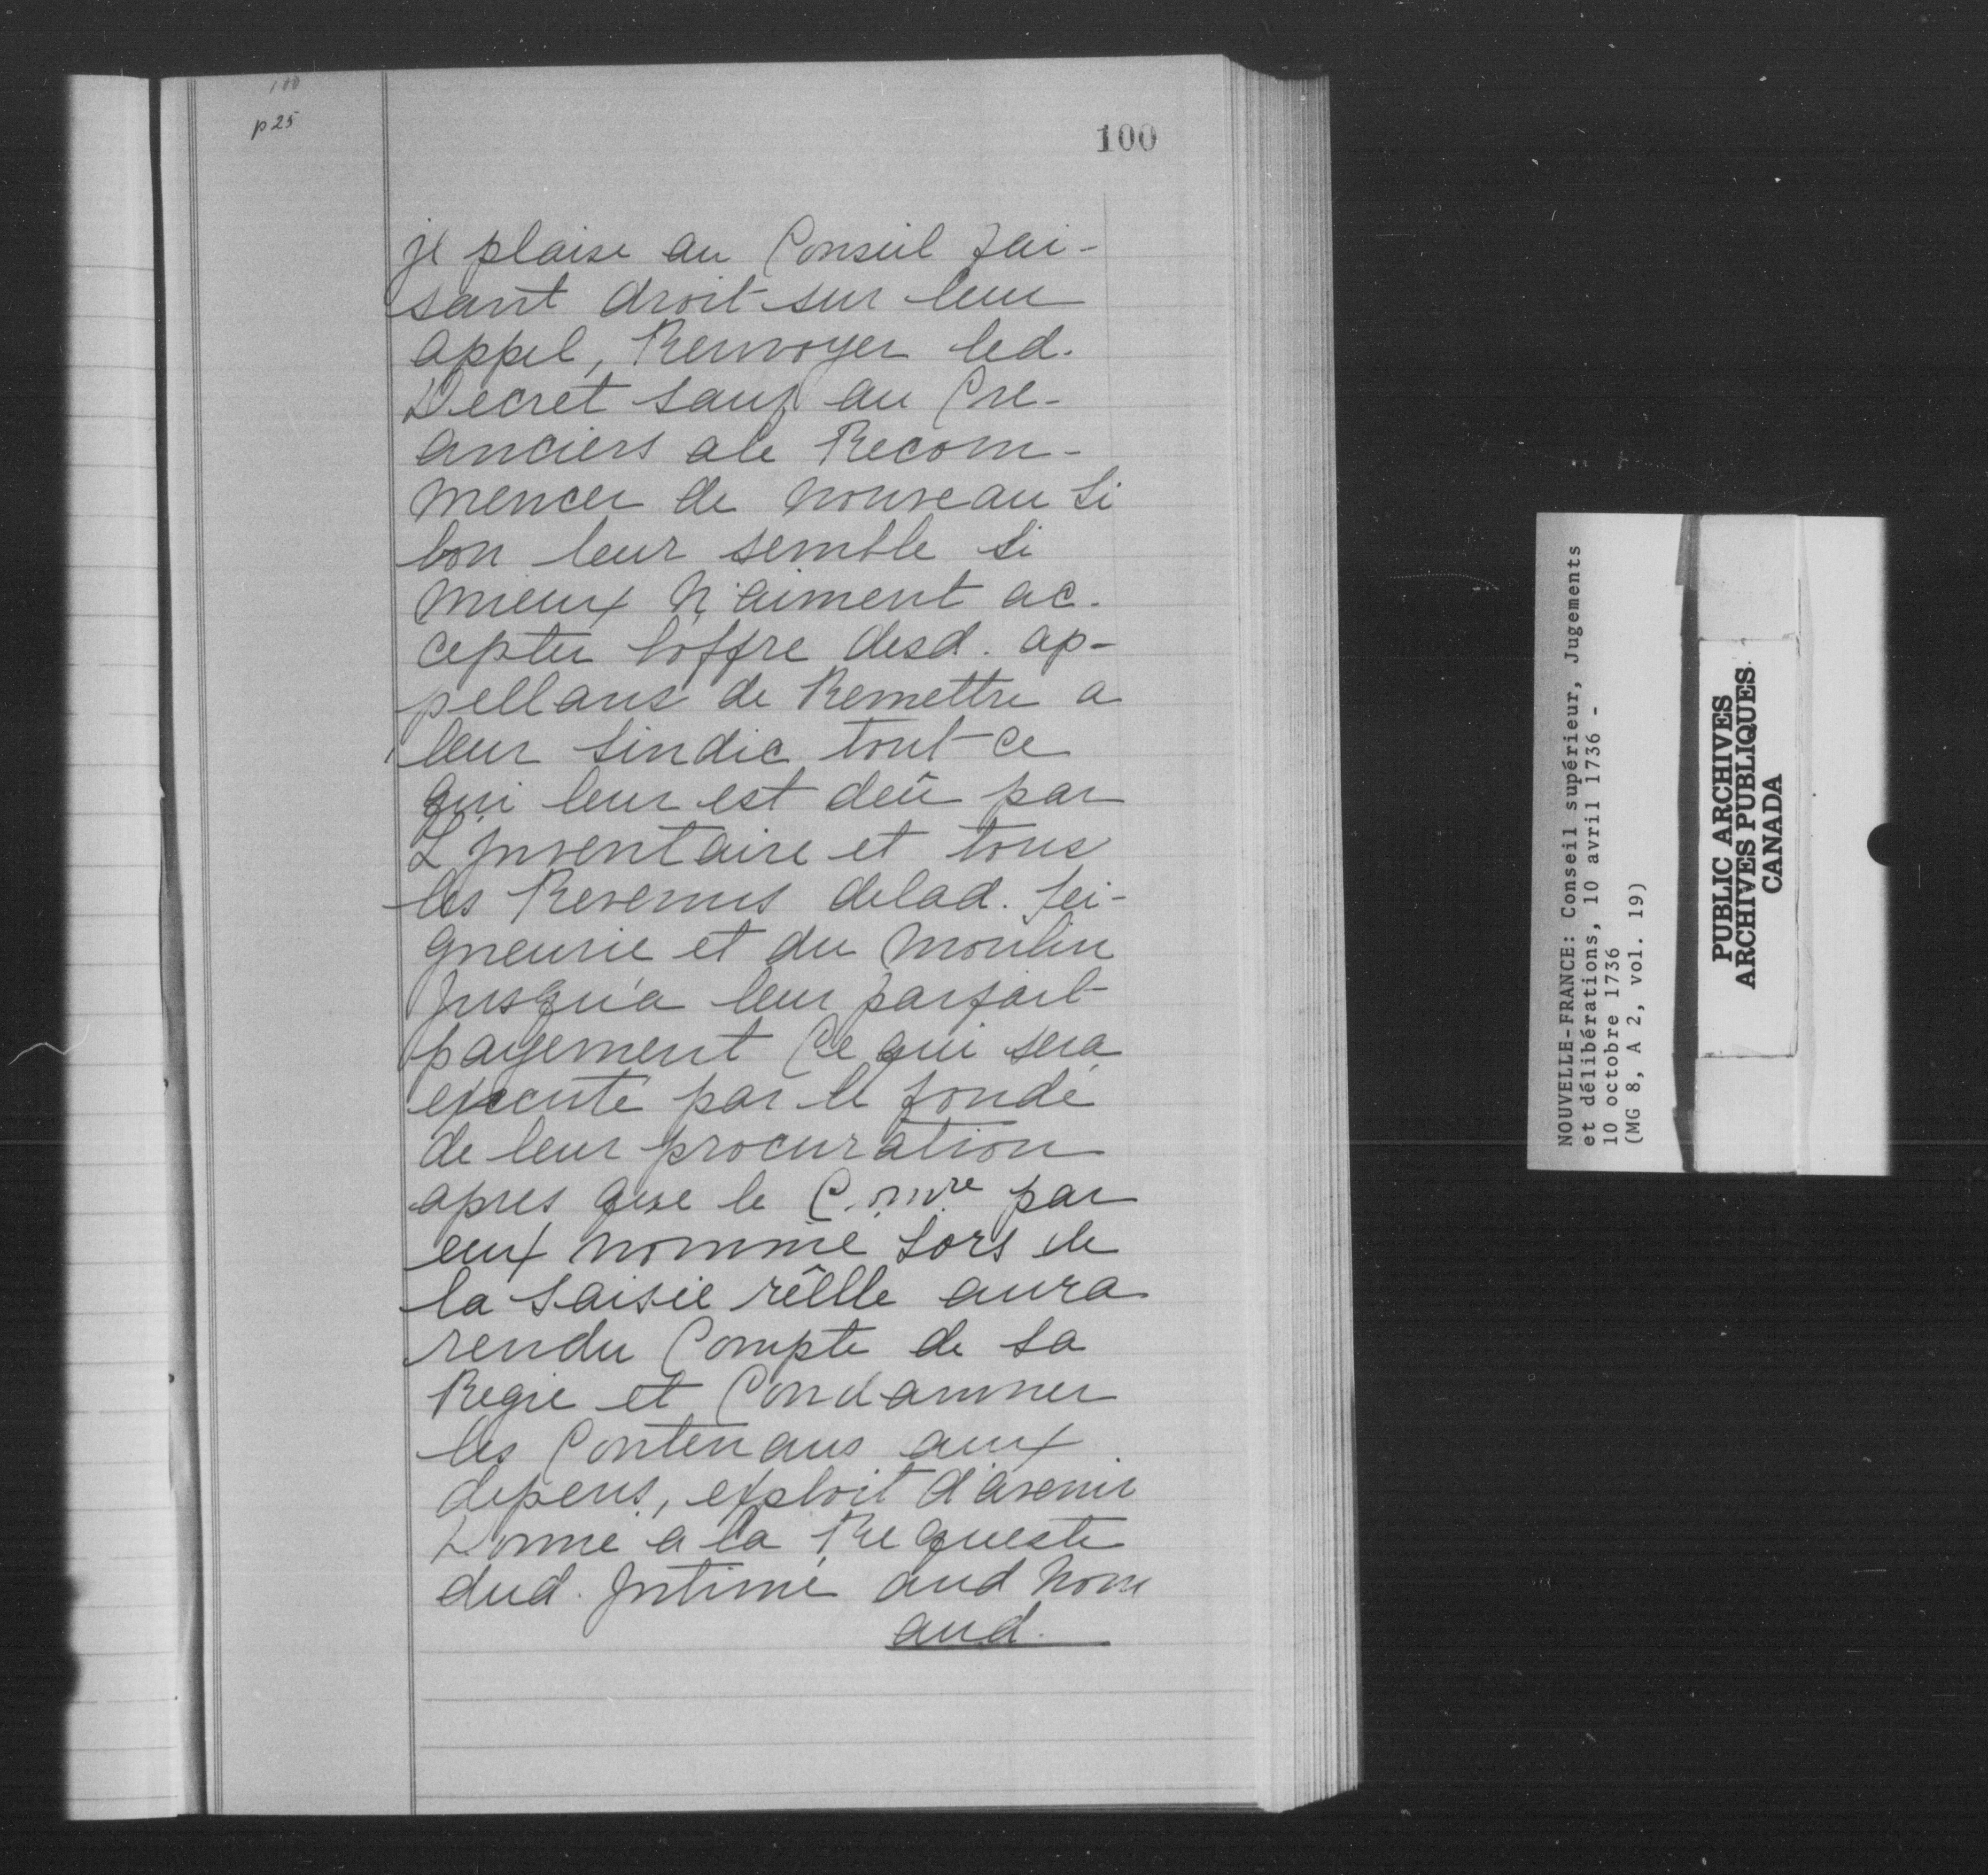 100
p 25
100
jl plaise au Conseil fai-
sant droit sur leur
appel, Renvoyer led.
Decret sauf au Cre-
anciers ale Recom-
mencer de nouveau Si
bon leur semble Si
mieux N'aiment ac-
cepter l'offre desd. ap-
pellans de Remettre a
leur Sindic tout ce
qui leur est deû par
L'jnventaire et tous
les Revenus delad. Sei-
gneurie et du Moulin
jusqu'a leur parfait
payement Ce qui sera
executé par le fondé
de leur procuration
apres que le C.mre par
eux nommé Lors de
la Saisie rêlle aura
rendu Compte de Sa
Regie et Condamner
les Contenans aux
depens, exploit d'avenir
Donné a la Requeste
dud. Jntimé aud Nom
aud.
NOUVELLE-FRANCE: Conseil supérieur, Jugements
et délibérations, 10 avril 1736 -
10 octobre 1736
(MG 8, A 2, vol. 19)
PUBLIC ARCHIVES
ARCHIVES PUBLIQUES
CANADA